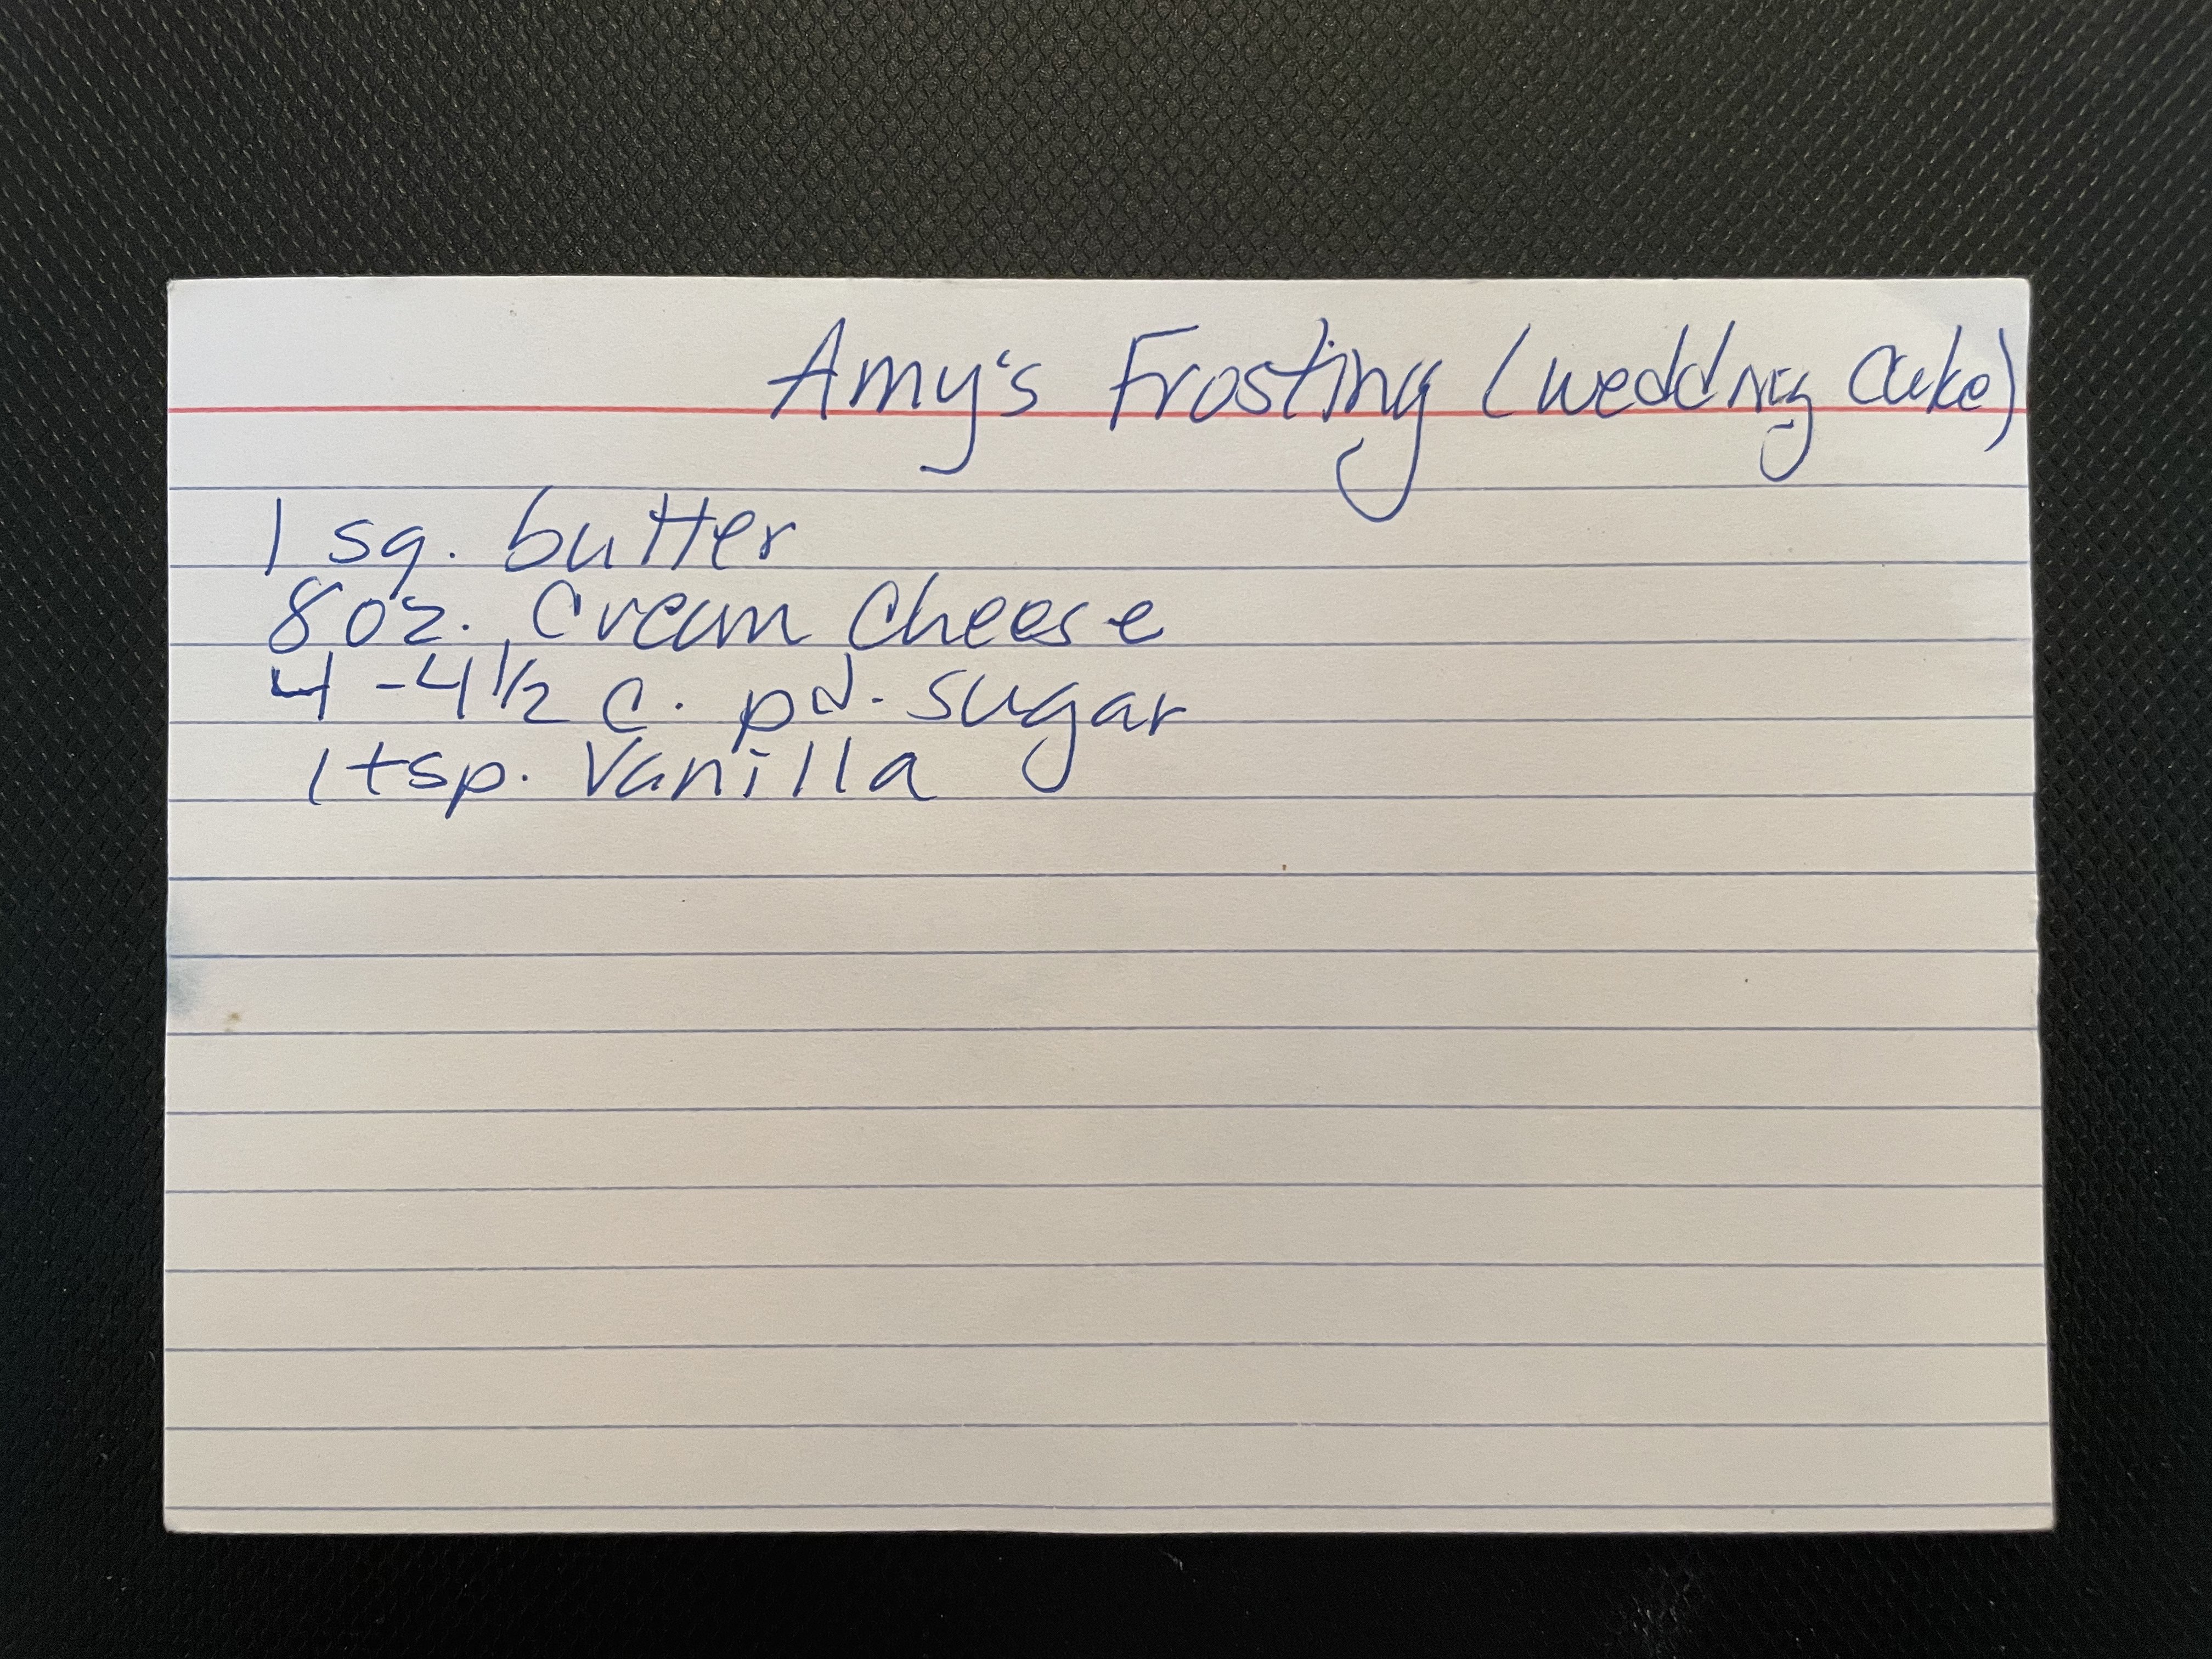 Amy's Frosting (wedding Cake)
1 sq. butter
8 oz. Cream Cheese
4 - 4 1/2 c. pd. sugar
1 tsp. Vanilla